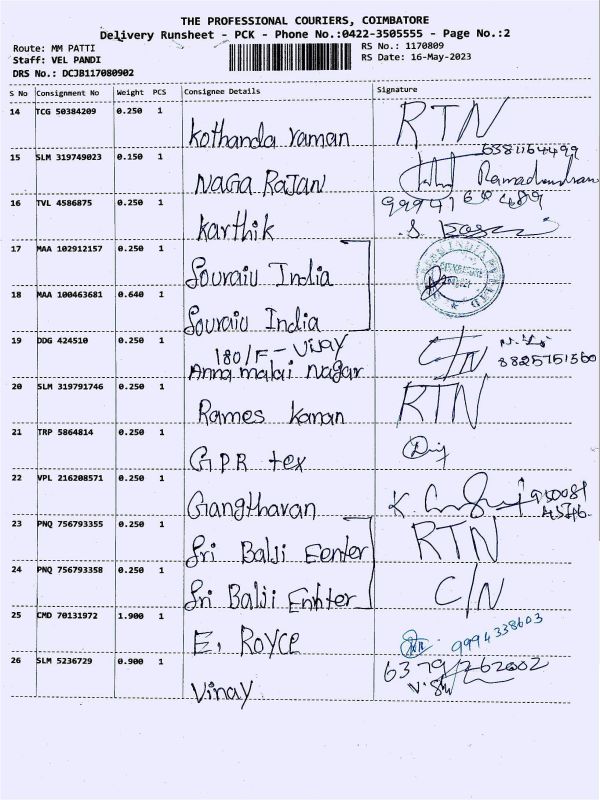 THE PROFESSIONAL COURIERS, COIMBATORE
Delivery Runsheet - PCK - Phone No.:0422-3505555 - Page No.:2
Route: MM PATTI
RS No.: 1170809
Staff: VEL PANDI
RS Date: 16-May-2023
DRS No.: DCJB117080902
S No Consignment No Weight PCS Consignee Details Signature
14 TCG 50384209 0.250 1 Kothanda raman RTN
6381164499
15 SLM 319749023 0.150 1 NAGA RAJAN Ramachandran
16 TVL 4586875 0.250 1 Karthik
17 MAA 102912157 0.250 1 Souraiu India
18 MAA 100463681 0.640 1 Souraiu India
19 DDG 424510 0.250 1 180/F - Vijay
Annamalai Nagar C/N 8825751360
20 SLM 319791746 0.250 1 Rames Kanan RTN
21 TRP 5864814 0.250 1 GPR tex
22 VPL 216208571 0.250 1 Gangtharan K.
23 PNQ 756793355 0.250 1 Sri Balji Eenter RTN
24 PNQ 756793358 0.250 1 Sri Balji Enhter C/N
25 CMD 70131972 1.900 1 E. ROYCE 9994338603
26 SLM 5236729 0.900 1 Vinay 6379262002